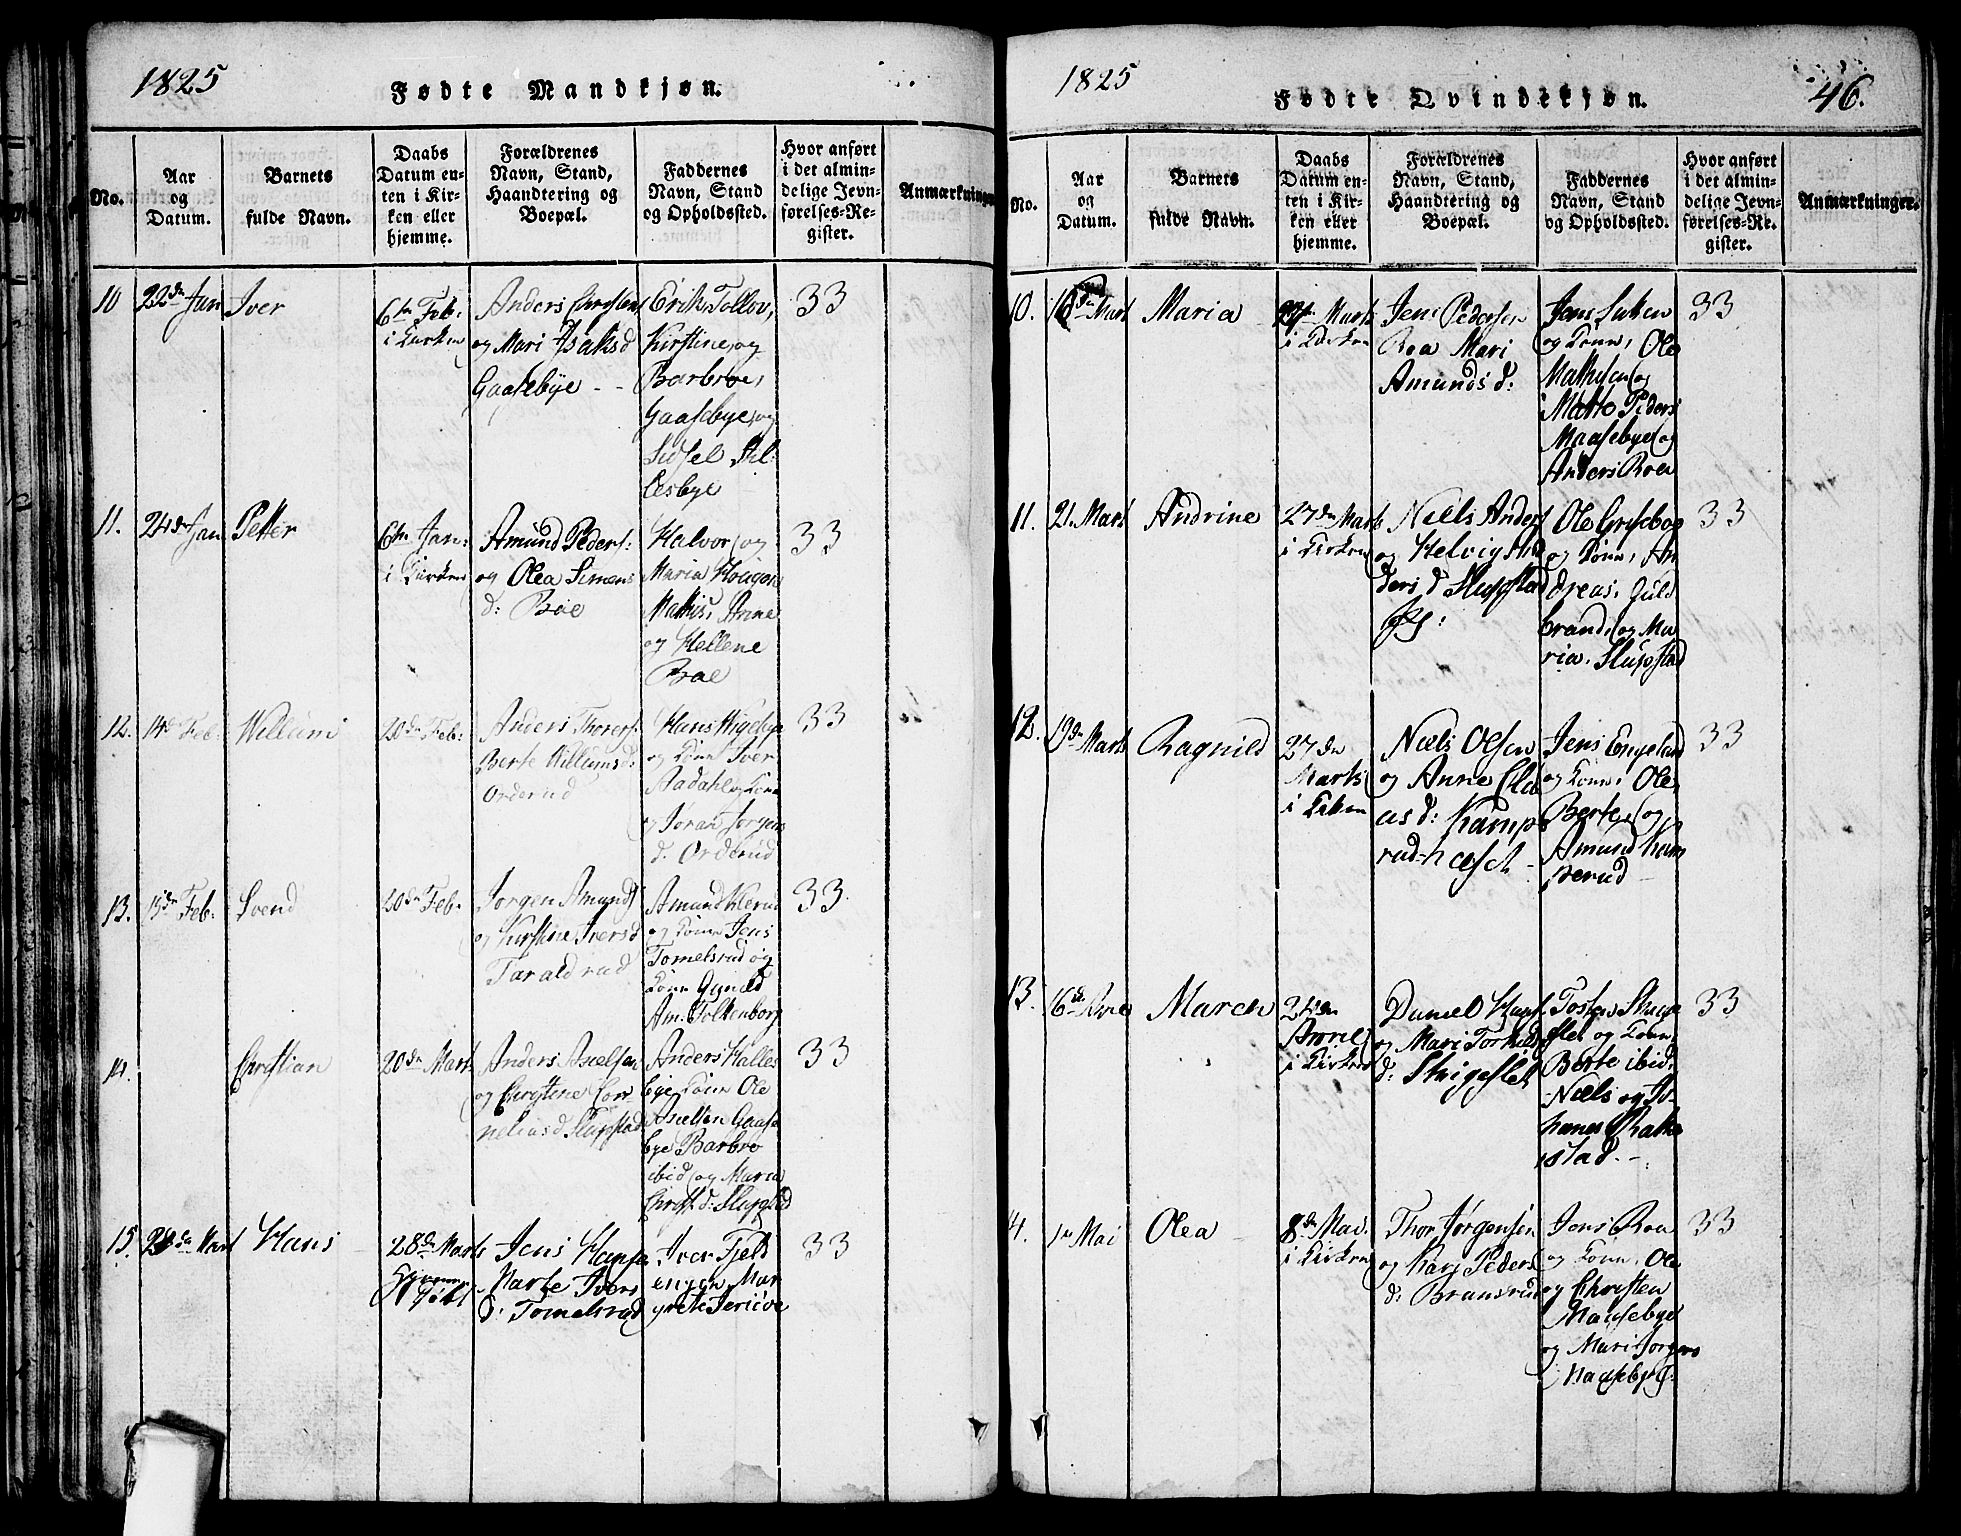 1825
Fødte Mandkjøn.
No.
Aar
og
Datum.
Barnets
fulde Navn.
Daabs
Datum en-
ten i Kir-
ken eller
hjemme.
Forældrenes
Navn, Stand,
Haandtering og
Boepæl.
Faddernes
Navn, Stand
og Opholdssted.
Hvor anført
i det almin-
delige Jevn-
førelses-Re-
gister.
Anmærkninger
10
22de Jan
Iver
6te Feb:
i Kirken
Anders Christens
og Mari Isaksd
Gaasebye - -
Erik Tollov,
Kirstine og
Barbroe,
Gaasebye og
Sidsel
33
11.
24de Jan
Petter
6te Jan:
i Kirken
Amund Peders:
og Olea Simens
d: Boe
Halvor og
Maria
Mathis, Anne
og Hellene
Boe
33
12.
14d Feb:
Willum
20de Feb:
Anders Thorers:
Berte Willumsd:
Orderud
Hans
og Kone Iver
Aadahl og Kone
og Jøran Jørgens
d. Orderud
33
13.
15de Feb:
Svend
20de Feb:
Jørgen Amunds
og Kirstine Iversd
Taraldrud
Amund
og Kone Jens
Tomelsrud og
Kone
Am. Folkenborg
33
14.
Christian
20de Marts
Anders Axelsen
og Christine Cor-
neliusd Slupstad
Anders Halles
bye Kone Ole
Axelsen Gaase
bye Barbro
ibid og Maria
Christ. d: Slupstad
33
15.
de Mart
Hans
28de Marts
Jens Hanse
Marte Ivers
d: Tomelsrud
Iver Fjeld
engen Mar
grete
33
1825
Fødte Qvindekjøn.
46.
No.
Aar
og
Datum.
Barnets
fulde Navn.
Daabs
Datum en-
ten i Kir-
ken eller
hjemme.
Forældrenes
Navn, Stand,
Haandtering og
Boepæl.
Faddernes
Navn, Stand
og Opholdssted.
Hvor anført
i det almin-
delige Jevn-
førelses-Re-
gister.
Anmærkninger.
10.
Mart
Maria
27de Marts
i Kirken
Jens Pedersen
Roa Mari
Amunds d:
Jens
og Kone, Ole
Mathisen og
Peders
Maasebye og
Anders Roa
33
11.
21. Mart
Andrine
27de Marts
i Kirken
Niels Anders
og Helvig An
ders d Slupstad
Ole
og Kone, An
dreas, Guld
brand, og Ma
ria, Slupstad
33
12.
19de Marts
Ragnild
27de
Marts
i Kirken
Niels Olsen
og Anne Cla
as d: Kamp
rud
Jens Engeland
og Kone, Ole
Berte, og
Amund Kam
perud
33
13.
6de
Maren
24de
April
i Kirken
Daniel Hans
og Mari
d: Skigeslet
Skige
slet og Kone
Berte ibid:
Niels og Jo-
hannes
stad.
33
4.
1te Mai
Olea
8de Mai.
i Kirken
Thor Jørgensen
og Kari Peders
d: Bransrud
Jens Roa
og Kone, Ole
og Christen
Maasebye
og Mari Jørgens
Maasebye
33